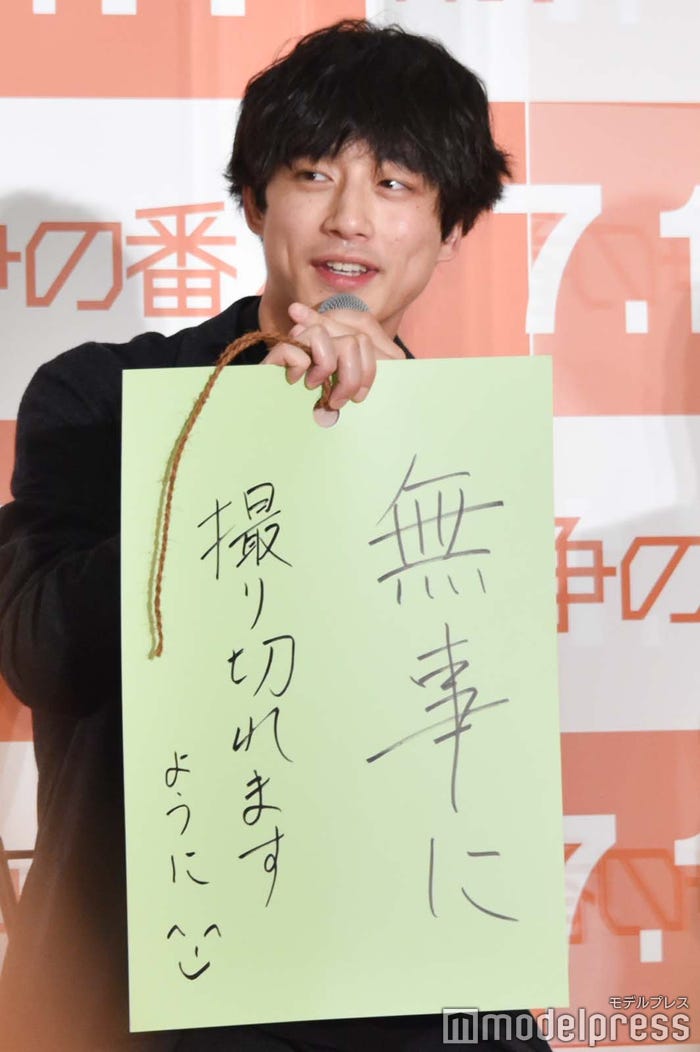 無事に
撮り切れます
ように
争の番
7.1
争の
7.1
争の番
モデルプレス
modelpress